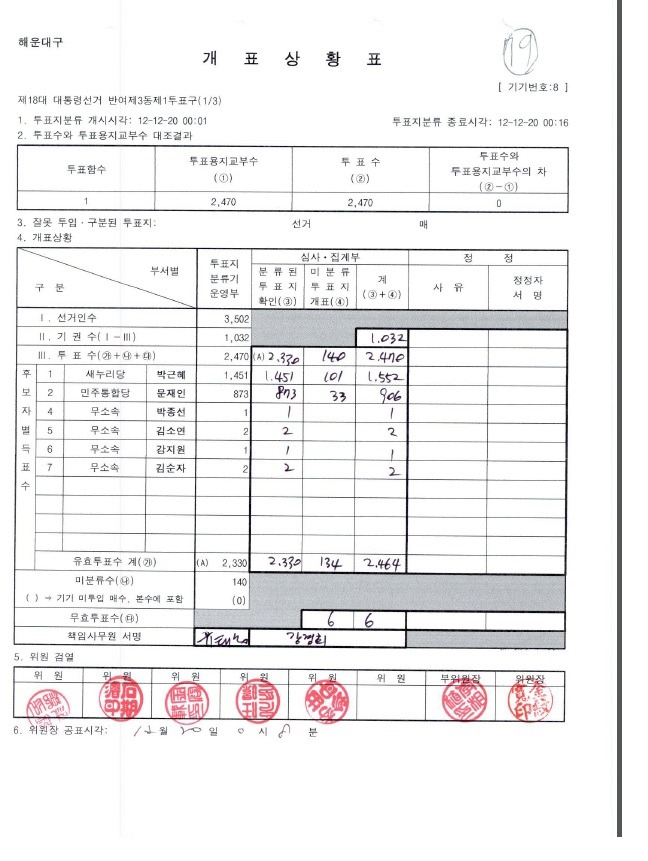 해운대구
19
개 표 상 황 표
[ 기기번호:8 ]
제18대 대통령선거 반여제3동제1투표구(1/3)
1. 투표지분류 개시시각: 12-12-20 00:01 투표지분류 종료시각: 12-12-20 00:16
2. 투표수와 투표용지교부수 대조결과
투표함수 투표용지교부수 (①) 투 표 수 (②) 투표수와 투표용지교부수의 차 (②-①)
1 2,470 2,470 0
3. 잘못 투입·구분된 투표지: 선거 매
4. 개표상황
구 분 부서별 투표지 분류기 운영부 심사·집계부 정 정
분 류 된 투 표 지 확인(③) 미 분 류 투 표 지 개표(④) 계 (③+④) 사 유 정정자 서 명
Ⅰ. 선거인수 3,502
Ⅱ. 기 권 수(Ⅰ-Ⅲ) 1,032 1.032
Ⅲ. 투 표 수(㉮+㉯+㉰) 2,470 (A) 2.330 140 2.470
후보자별득표수
1 새누리당 박근혜 1,451 1.451 101 1.552
2 민주통합당 문재인 873 873 33 906
4 무소속 박종선 1 1 1
5 무소속 김소연 2 2 2
6 무소속 강지원 1 1 1
7 무소속 김순자 2 2 2
유효투표수 계(㉮) (A) 2,330 2.330 134 2.464
미분류수(㉯) 140
( ) ⇒ 기기 미투입 매수, 본수에 포함 (0)
무효투표수(㉰) 6 6
책임사무원 서명
5. 위원 검열
위 원 위 원 위 원 위 원 위 원 위 원 부위원장 위원장
6. 위원장 공표시각: 12월 20일 0 시 분